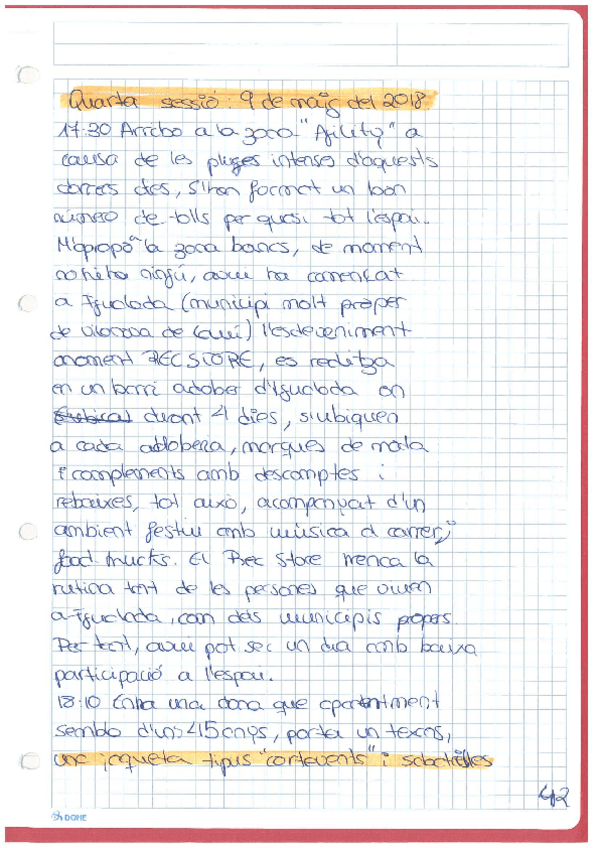 Quarta sessió: 9 de maig del 2018.
17:30 Arribo a la zona "Agility" a
causa de les pluges intenses d'aquests
darrers dies, s'han format un bon
número de tolls per quasi tot l'espai.
M'apropo a la zona bancs, de moment
no hi ha ningú, avui ha començat
a Igualada (municipi molt proper
de Vilanova del Camí) l'esdeveniment
anomenat REC STORE, es realitza
en un barri adober d'Igualada on
durant 4 dies, s'ubiquen
a cada adobera, marques de moda
i complements amb descomptes i
rebaixes, tot això, acompanyat d'un
ambient festiu amb música al carrer,
food trucks. El Rec Store trenca la
rutina tant de les persones que viuen
a Igualada, com dels municipis propers.
Per tant, avui pot ser un dia amb baixa
participació a l'espai.
18:10 Entra una dona que aparentment
sembla d'uns 45 anys, porta un texans,
una jaqueta tipus "cortavents" i sabatilles
42
DOHE